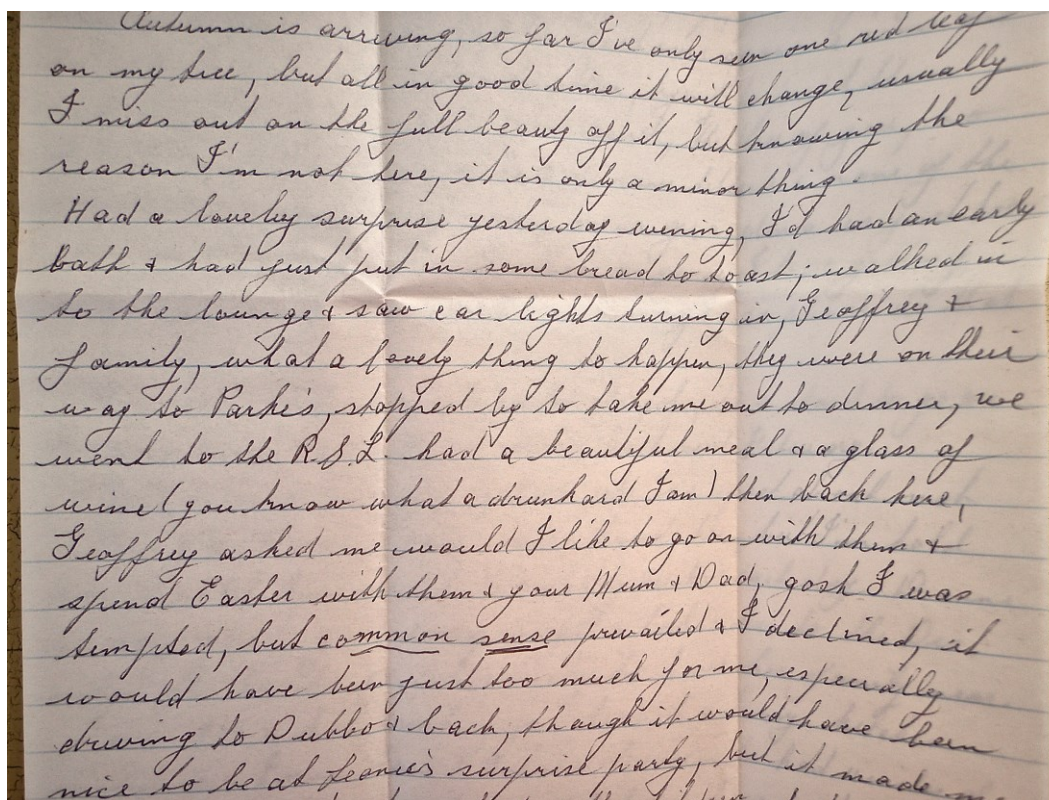 Autumn is arriving, so far I've only seen one red leaf
on my tree, but all in good time it will change, usually
I miss out on the full beauty off it, but knowing the
reason I'm not here, it is only a minor thing.
Had a lovely surprise yesterday evening, I'd had an early
bath & had just put in some bread to toast; walked in
to the lounge & saw car lights turning in, Geoffrey &
family, what a lovely thing to happen, they were on their
way to Parkes, stopped by to take me out to dinner, we
went to the R.S.L. had a beautiful meal & a glass of
wine (you know what a drunkard I am) then back here,
Geoffrey asked me would I like to go on with them &
spend Easter with them & your Mum & Dad, gosh I was
tempted, but common sense prevailed & I declined, it
would have been just too much for me, especially
driving to Dubbo & back, though it would have been
nice to be at Leonie's surprise party, but it made